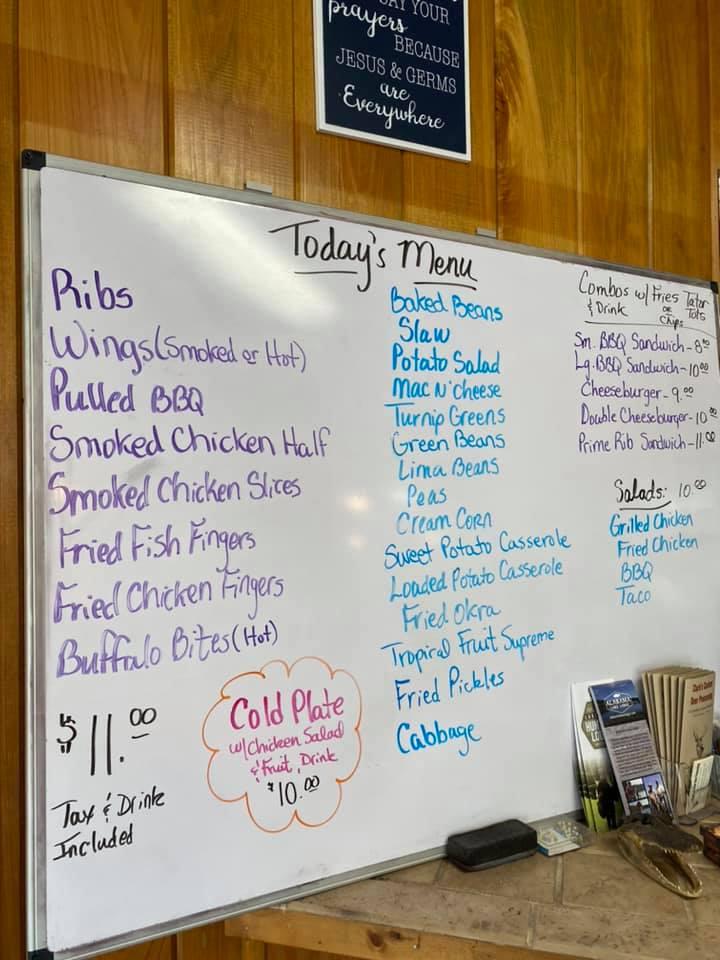 SAY YOUR
prayers
BECAUSE
JESUS & GERMS
are
Everywhere
Today's Menu
Ribs
Wings (Smoked or Hot)
Pulled BBQ
Smoked Chicken Half
Smoked Chicken Slices
Fried Fish Fingers
Fried Chicken Fingers
Buffalo Bites (Hot)
$11.00
Tax & Drink
Included
Cold Plate
w/Chicken Salad
& Fruit, Drink
$10.00
Baked Beans
Slaw
Potato Salad
Mac N' Cheese
Turnip Greens
Green Beans
Lima Beans
Peas
Cream Corn
Sweet Potato Casserole
Loaded Potato Casserole
Fried Okra
Tropical Fruit Supreme
Fried Pickles
Cabbage
Combos w/ Fries Tater
& Drink or Chips Tots
Sm. BBQ Sandwich - 8.00
Lg. BBQ Sandwich - 10.00
Cheeseburger - 9.00
Double Cheeseburger - 10.00
Prime Rib Sandwich - 11.00
Salads: 10.00
Grilled Chicken
Fried Chicken
BBQ
Taco
ALABAMA